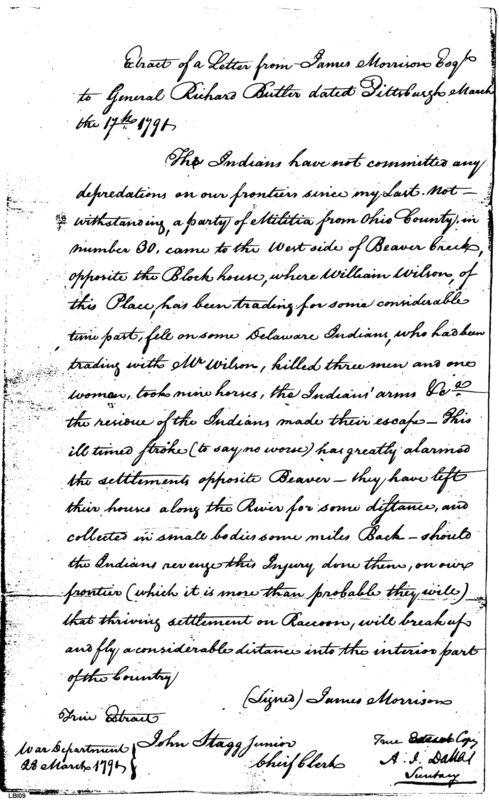 Extract of a Letter from James Morrison Esqr
to General Richard Butler dated Pittsburgh March
the 17th 1791
The Indians have not committed any
depredations on our frontiers since my Last. Not-
withstanding, a party of Militia from Ohio County, in
number 30, came to the West side of Beaver Creek,
opposite the Block house, where William Wilson, of
this Place, has been trading for some considerable
time past, fell on some Delaware Indians, who had been
trading with Mr Wilson, killed three men and one
woman, took nine horses, the Indians' arms &ca
the residue of the Indians made their escape - This
ill timed stroke (to say no worse) has greatly alarmed
the settlements opposite Beaver - they have left
their houses along the River for some distance, and
collected in small bodies some miles Back - should
the Indians revenge this Injury done them, on our
frontier (which it is more than probable they will)
that thriving settlement on Raccoon, will break up
and fly a considerable distance into the interior part
of the Country
(Signed) James Morrison
True Extract
John Stagg Junior
Chief Clerk
War Department
23 March 1791
True Copy
A. J. Dallas
Secretary
LBI09